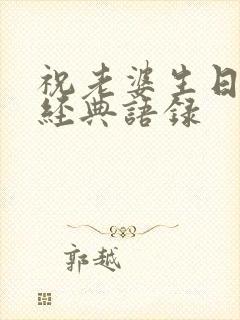 祝老婆生日
經典語錄
郭越